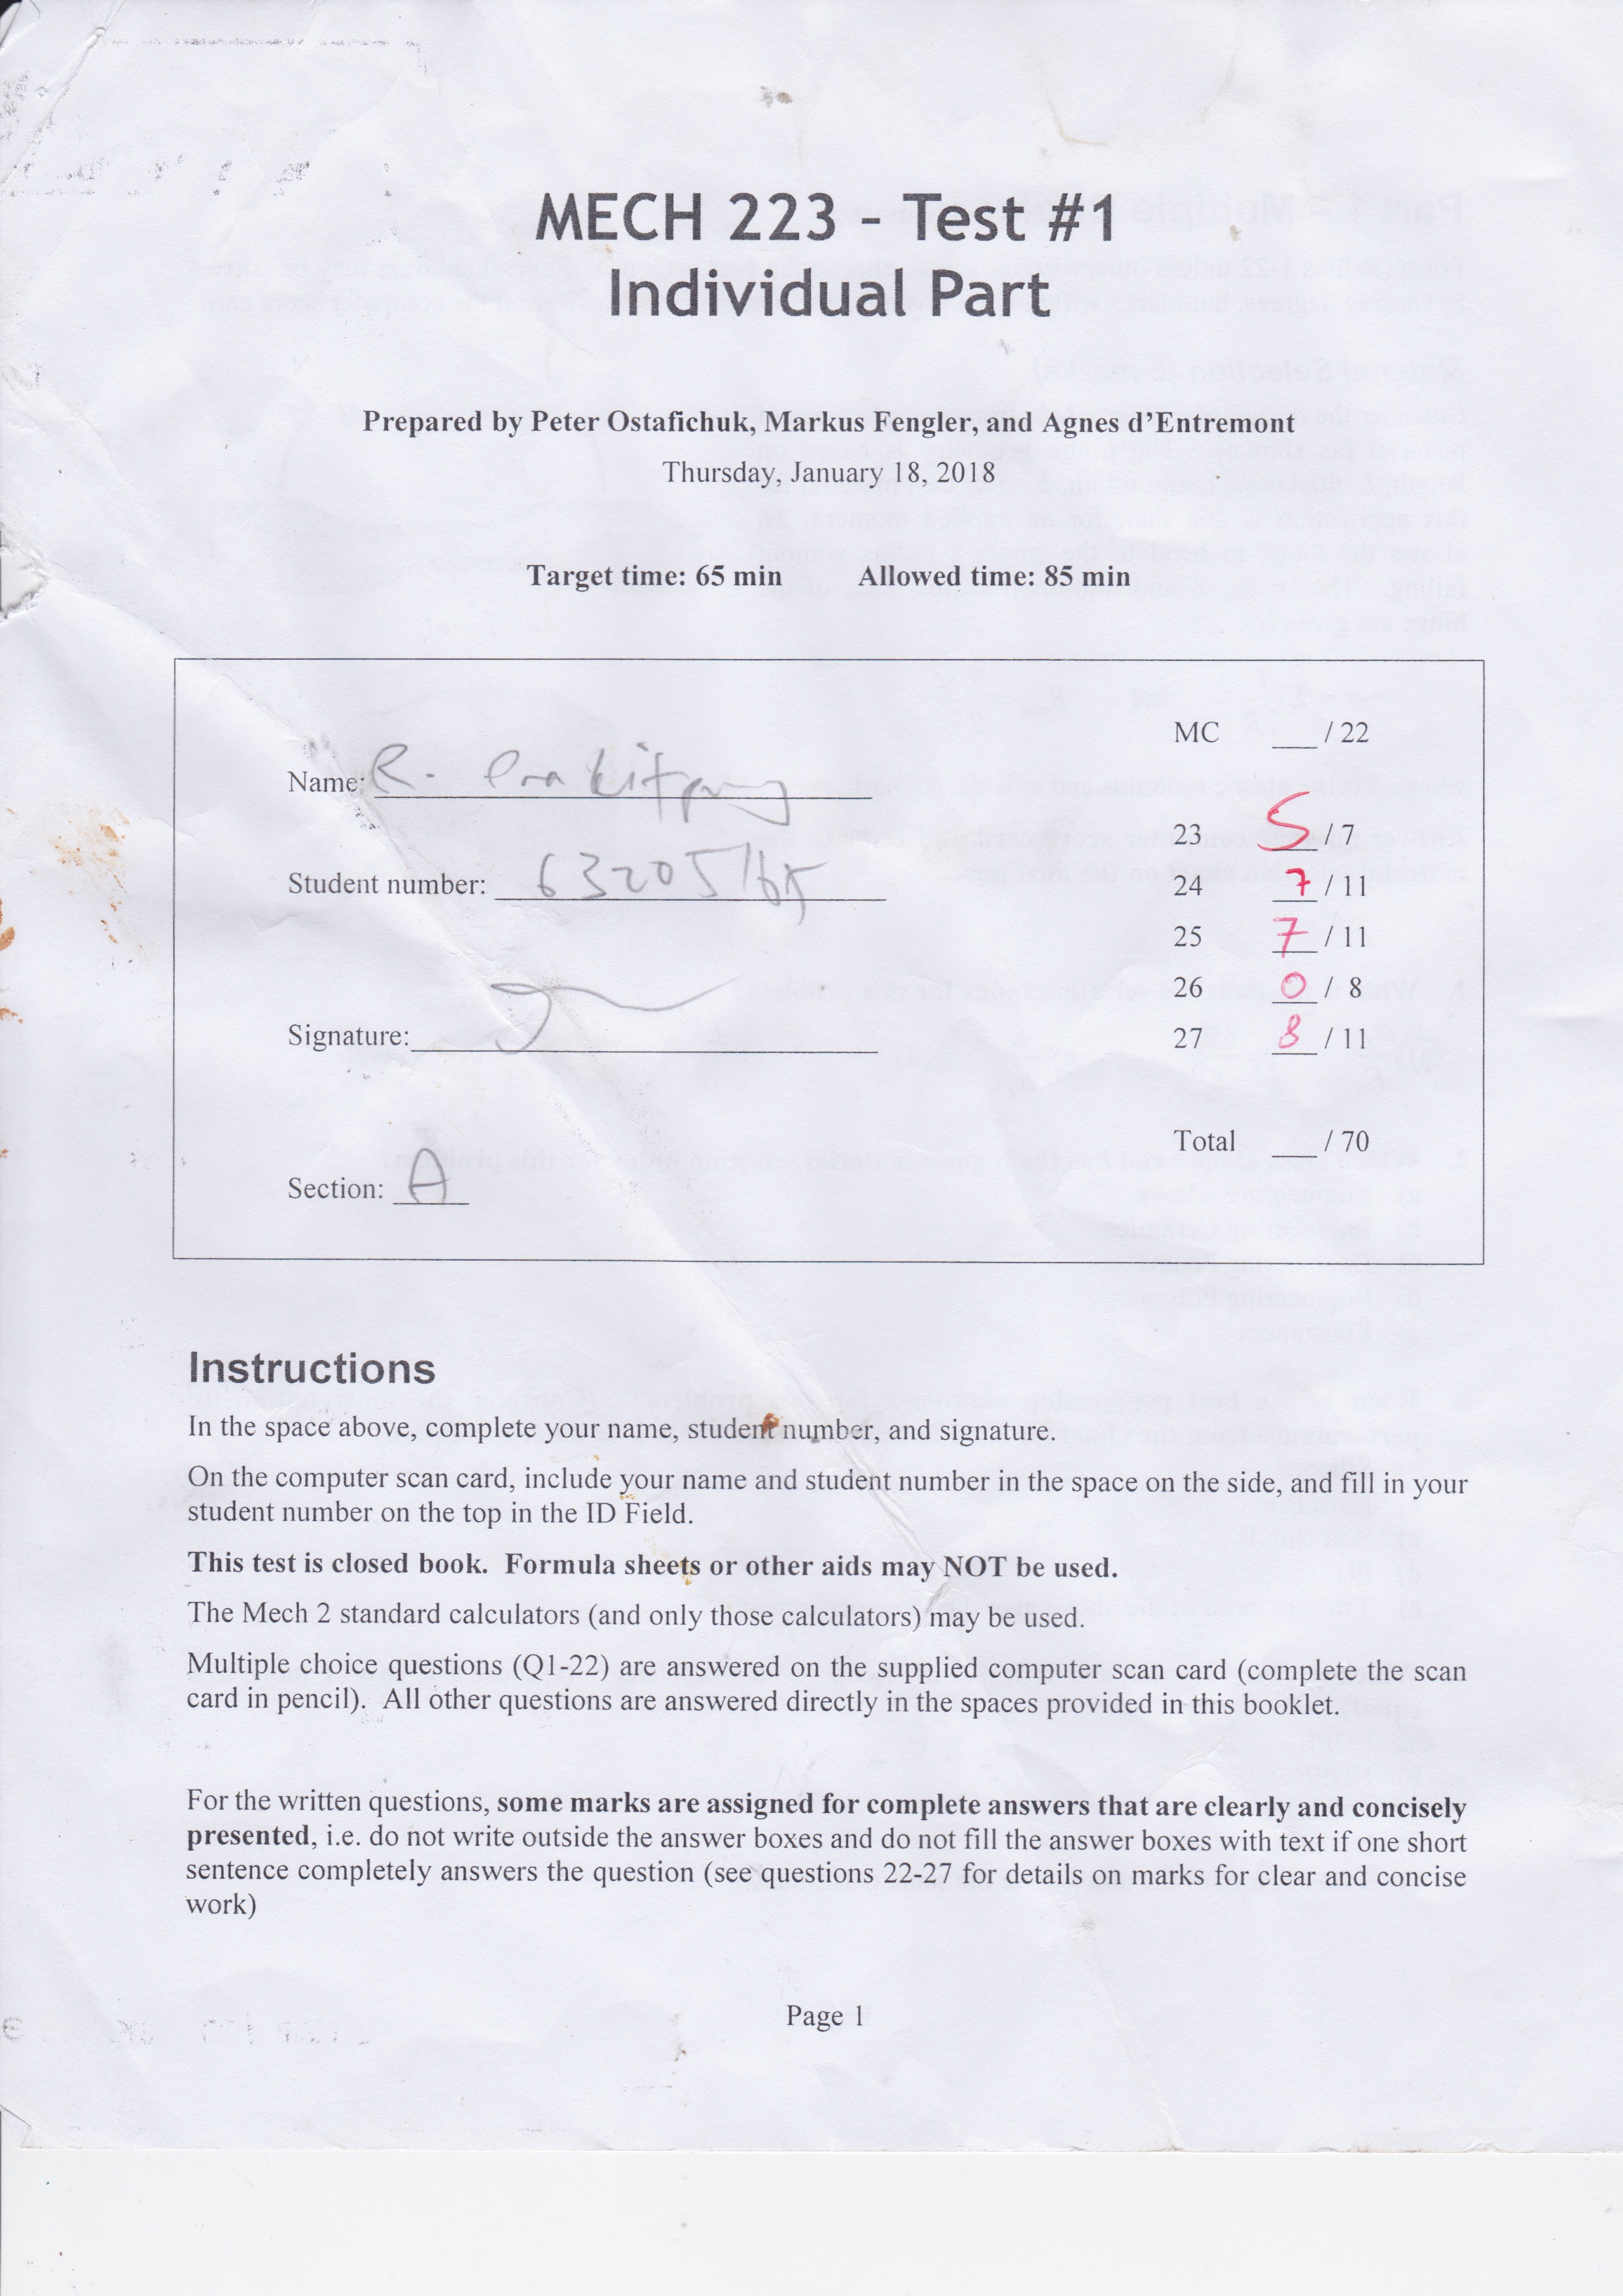 MECH 223 - Test #1
Individual Part
Prepared by Peter Ostafichuk, Markus Fengler, and Agnes d'Entremont
Thursday, January 18, 2018
Target time: 65 min Allowed time: 85 min
Name: R.
Student number: 
Signature:
Section: A
MC ___ / 22
23 5 / 7
24 7 / 11
25 7 / 11
26 0 / 8
27 8 / 11
Total ___ / 70
Instructions
In the space above, complete your name, student number, and signature.
On the computer scan card, include your name and student number in the space on the side, and fill in your
student number on the top in the ID Field.
This test is closed book. Formula sheets or other aids may NOT be used.
The Mech 2 standard calculators (and only those calculators) may be used.
Multiple choice questions (Q1-22) are answered on the supplied computer scan card (complete the scan
card in pencil). All other questions are answered directly in the spaces provided in this booklet.
For the written questions, some marks are assigned for complete answers that are clearly and concisely
presented, i.e. do not write outside the answer boxes and do not fill the answer boxes with text if one short
sentence completely answers the question (see questions 22-27 for details on marks for clear and concise
work)
Page 1